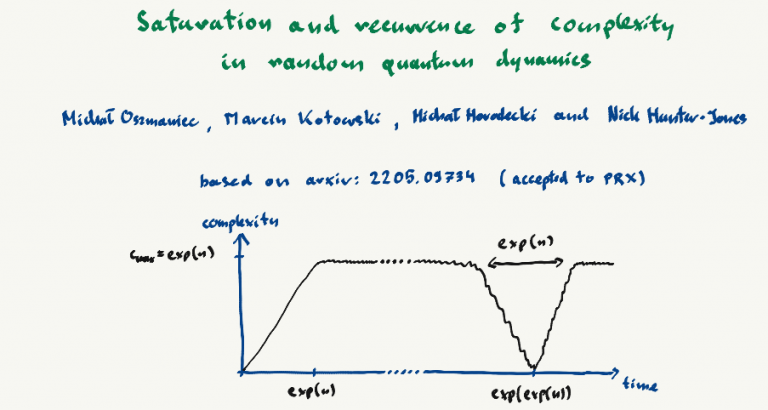 Saturation and recurrence of complexity
in random quantum dynamics
Michał Oszmaniec, Marcin Kotowski, Michał Horodecki and Nick Hunter-Jones
based on arxiv: 2205.09734 (accepted to PRX)
complexity
Cmax ≈ exp(n)
exp(n)
exp(n)
exp(exp(n))
time